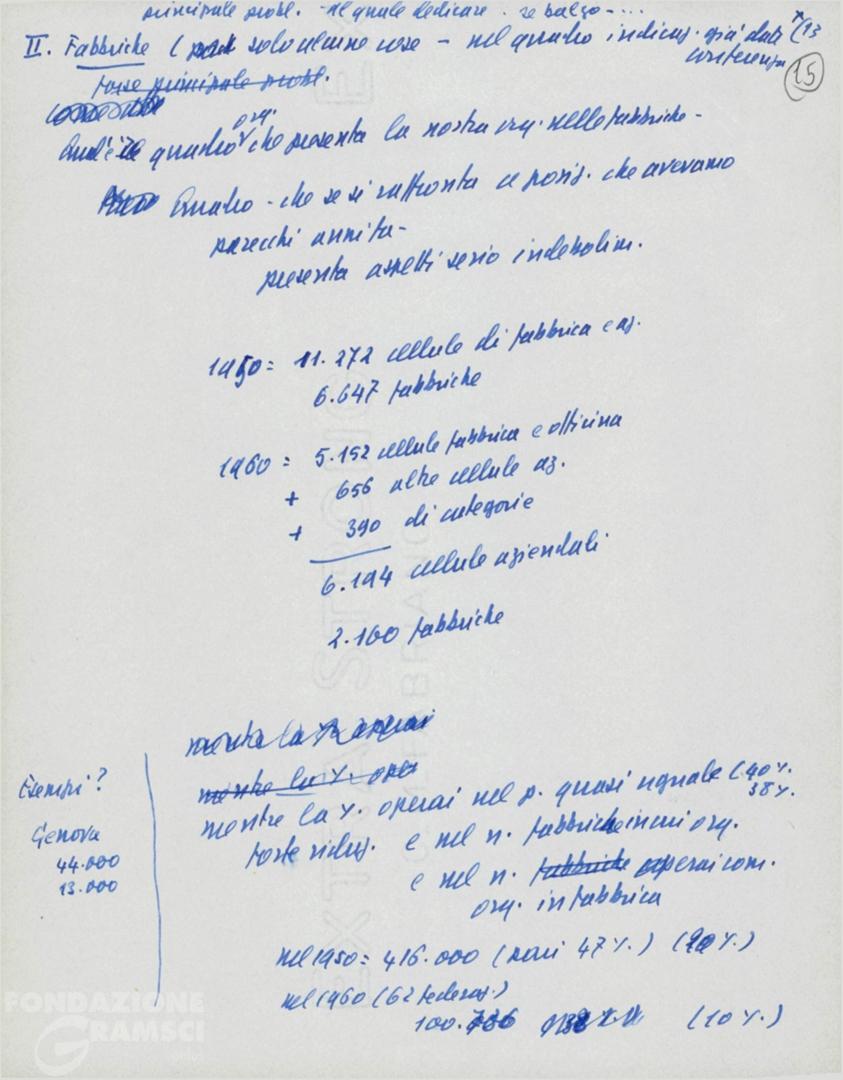 principale probl. - al quale dedicare . se balzo - ...
II. Fabbriche ( solo alcune cose - nel quadro indicaz. già dati (13
forse principale probl. conferenza 15
Qual è il quadro org. che presenta la nostra org. nelle fabbriche -
Quadro - che se si raffronta a posiz. che avevamo
parecchi anni fa -
presenta aspetti serio indebolim.
1950 = 11.272 cellule di fabbrica e az.
6.647 fabbriche
1960 = 5.152 cellule fabbrica e officina
+ 656 altre cellule az.
+ 390 di categorie
6.194 cellule aziendali
2.160 fabbriche
mentre la % operai
mentre la %. ope
Esempi? mentre la %. operai nel p. quasi uguale (40 %.
38 %.
Genova forte riduz. e nel n. fabbriche in cui org.
44.000 e nel n. fabbriche operai com.
13.000 org. in fabbrica
nel 1950 = 416.000 (pari 47 %.) (20 %.)
nel 1960 (62 federaz.)
100. (10 %.)
FONDAZIONE
GRAMSCI